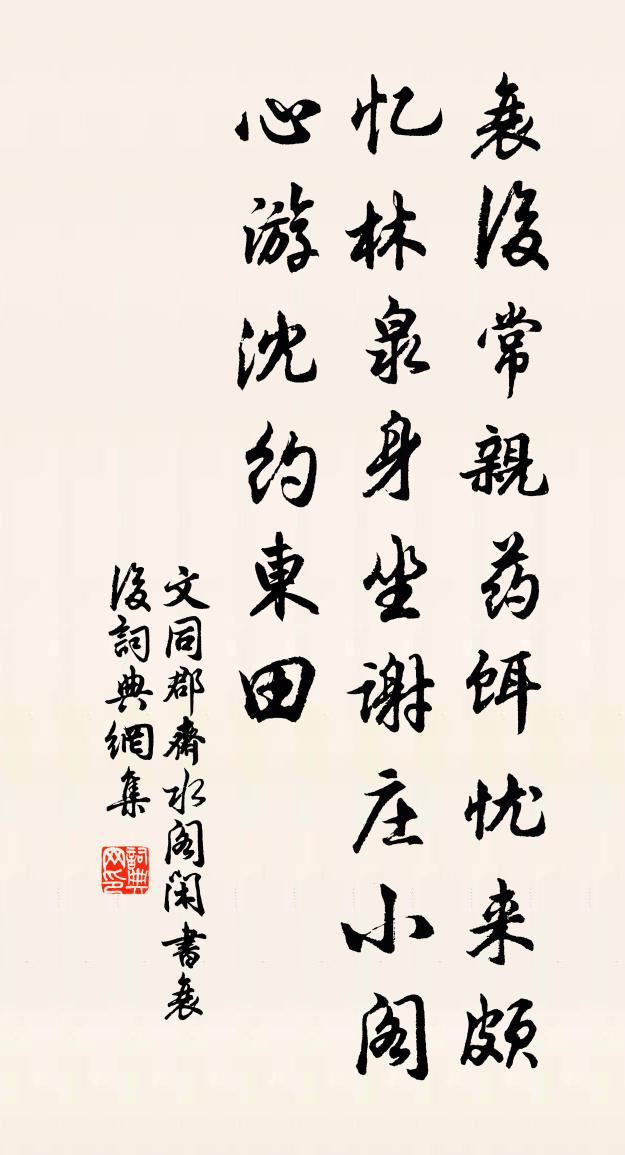 衰後常親药饵忧来頗
忆林泉身坐谢庄小阁
心游沈约東田
文同郡齋水阁閑書衰
後詞典網集
詞典網印